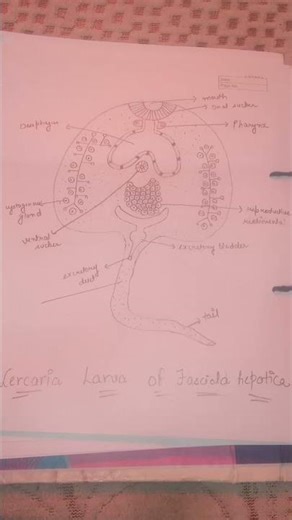 mouth
oral sucker
Pharynx
oesophagus
gland
ventral
sucker
reproductive
rudiments
excretory bladder
excretory
duct
tail
Cercaria Larva of Fasciola hepatica